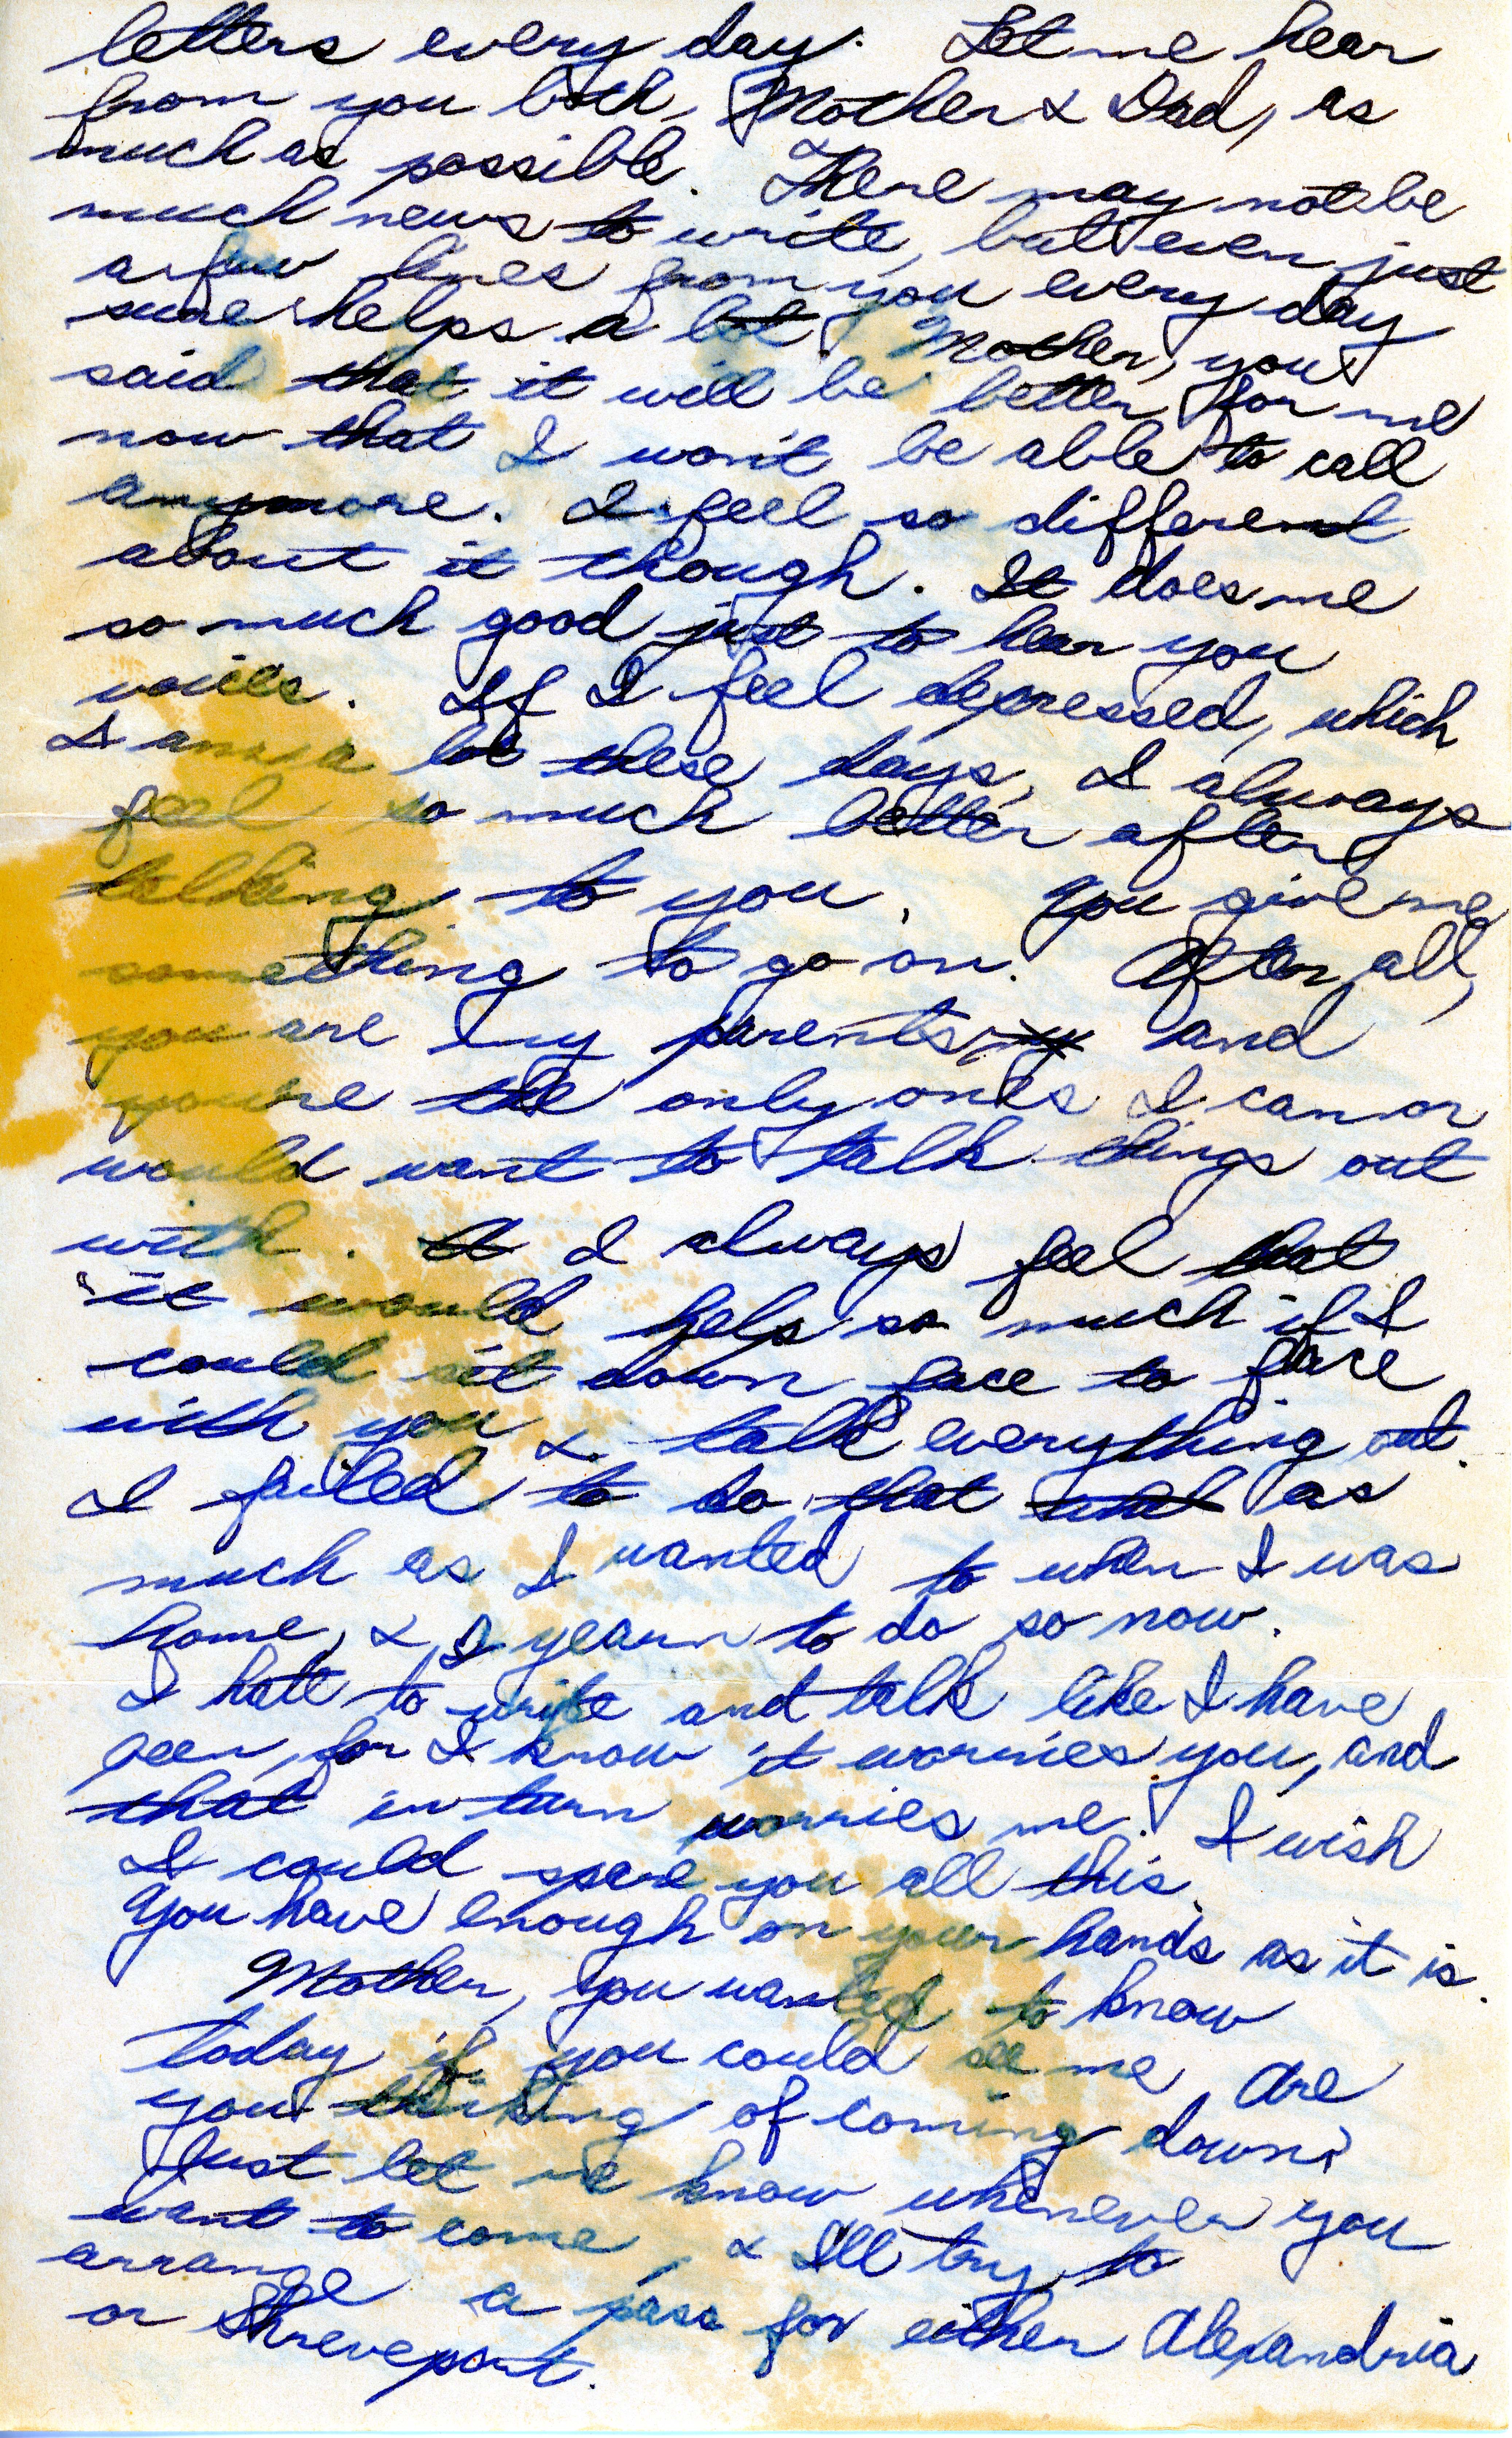 letters every day. Let me hear
from you both, Mother & Dad, as
much as possible. There may not be
much news to write, but even just
a few lines from you every day
sure helps a lot. Mother, you
said that it will be better for me
now that I won't be able to call
anymore. I feel so different
about it though. It does me
so much good just to hear you
voices. If I feel depressed, which
I am a lot these days, I always
feel so much better after
talking to you. You give me
something to go on. After all,
you are my parents, my and
you're the only ones I can or
would want to talk things out
with. I always feel that
it would help so much if I
could sit down face to face
with you & talk everything out.
I failed to do that and as
much as I wanted to when I was
home, & I yearn to do so now.
I hate to write and talk like I have
been, for I know it worries you, and
that in turn worries me. I wish
I could spare you all this.
You have enough on your hands as it is.
Mother, you wanted to know
today if you could see me. Are
you thinking of coming down?
Just let me know whenever you
want to come, & I'll try to
arrange a pass for either Alexandria
or Shreveport.